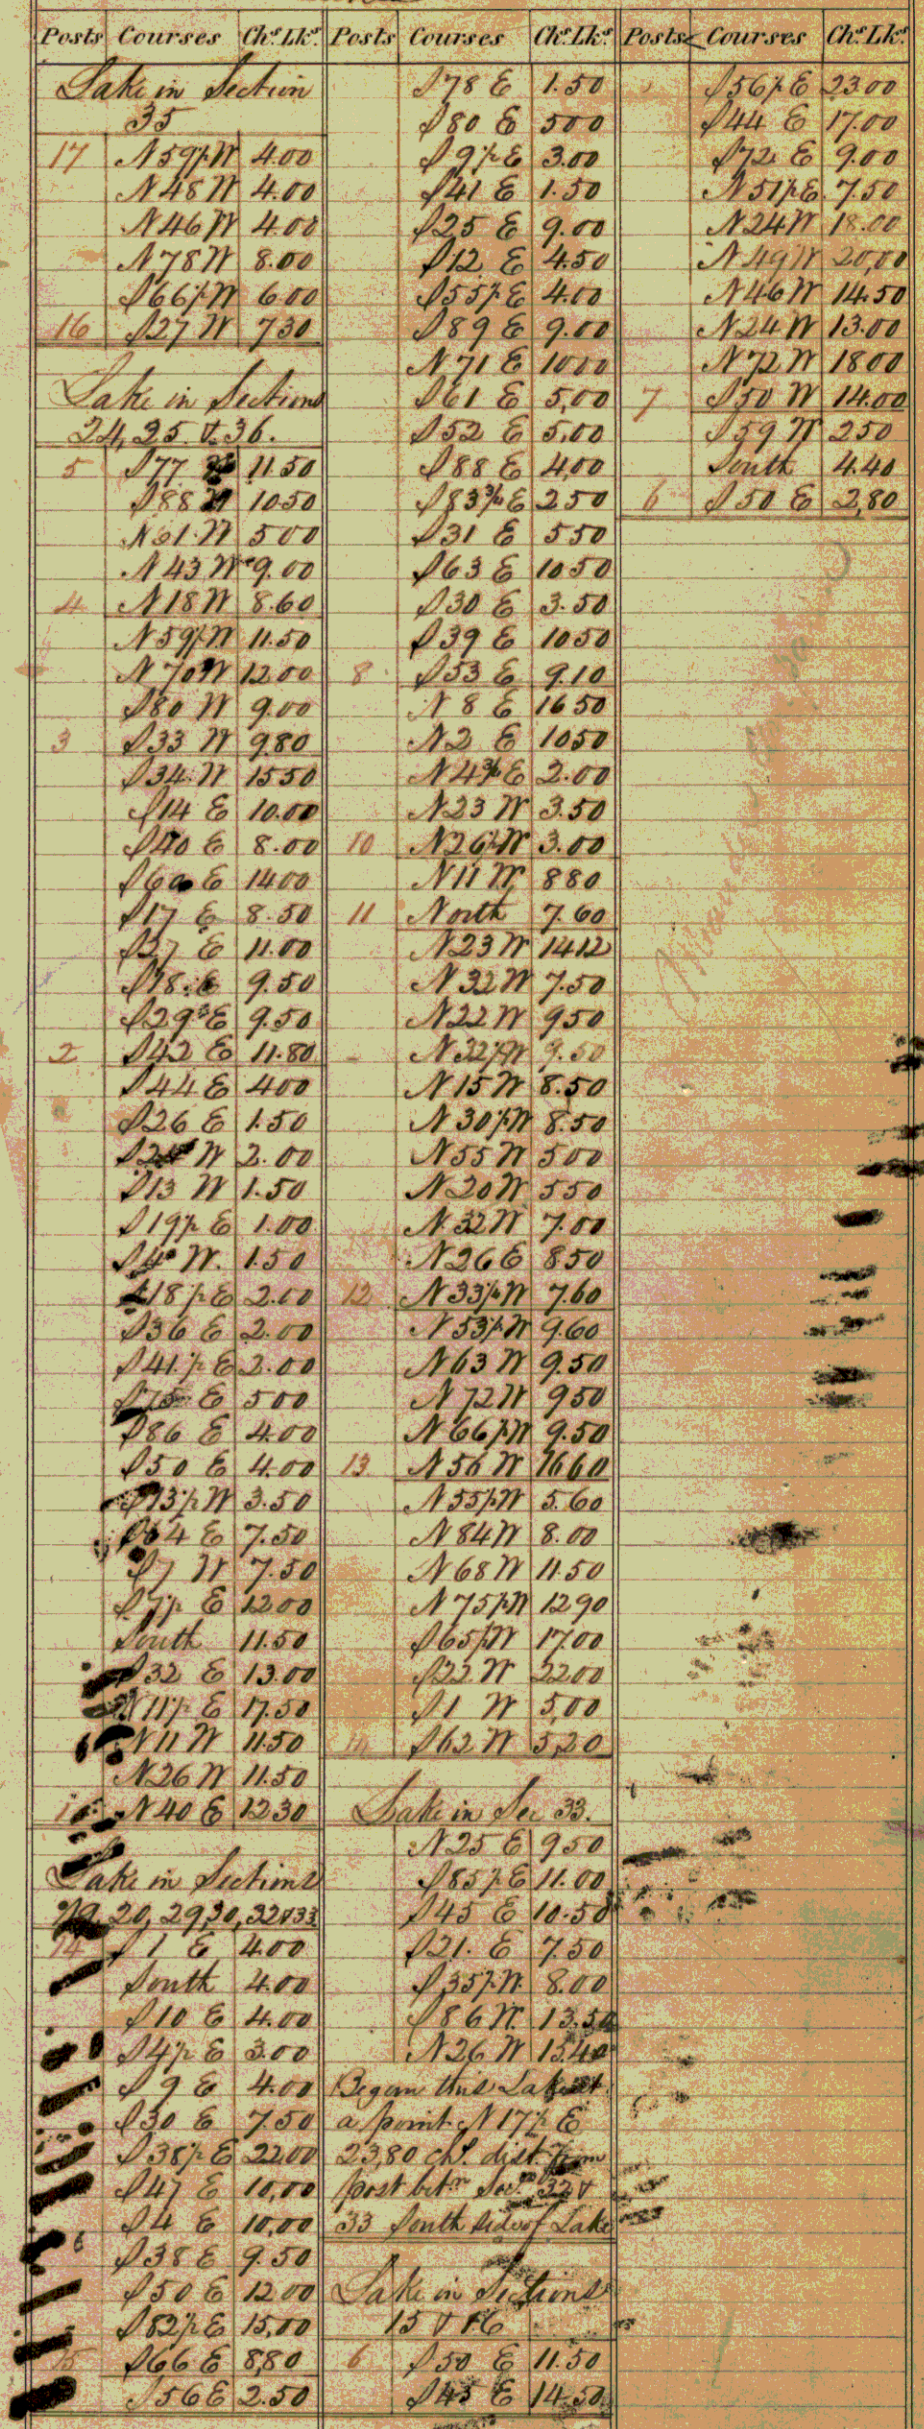 Posts Courses Chs. Lks.
Lake in Section
35
17 N 59½ W 4.00
N 48 W 4.00
N 46 W 4.00
N 78 W 8.00
S 66½ W 6.00
16 S 27 W 7 30
Lake in Sections
24, 25 & 36.
5 S 77 11.50
S 88 W 10 50
N 61 W 5 00
N 43 W 9.00
4 N 18 W 8.60
N 59½ W 11.50
N 70 W 12.00
S 80 W 9.00
3 S 33 W 9.80
S 34 W 15 50
S 14 E 10.00
S 40 E 8.00
S 60 E 14 00
S 17 E 8.50
S 27 E 11.00
S 18 E 9.50
S 29 E 9.50
2 S 42 E 11.80
S 44 E 4 00
S 26 E 1.50
W 2.00
S 13 W 1.50
S 19½ E 1.00
S 4 W. 1.50
S 18½ E 2.00
S 36 E 2.00
S 41½ E 2.00
S 75 E 5 00
S 86 E 4.00
S 50 E 4.00
S 73½ W 3.50
4 E 7.50
S 7 W 7.50
S 7½ E 12 00
South 11.50
S 32 E 13.00
N 11½ E 17.50
N 11 W 11.50
N 26 W 11.50
N 40 E 12 30
Lake in Sections
20, 29, 30, 32 & 33
14 S 1 E 4.00
South 4.00
S 10 E 4.00
S 4½ E 3.00
S 9 E 4.00
S 30 E 7.50
S 38½ E 22.00
S 47 E 10,00
S 4 E 10,00
S 38 E 9.50
S 50 E 12 00
S 82½ E 15,00
15 S 66 E 8,80
S 56 E 2.50
Posts Courses Chs. Lks.
S 78 E 1.50
S 80 E 5 00
S 9½ E 3.00
S 41 E 1.50
S 25 E 9.00
S 12 E 4.50
S 55½ E 4.00
S 89 E 9.00
N 71 E 10 00
S 61 E 5,00
S 52 E 5.00
S 88 E 4,00
S 83¾ E 2 50
S 31 E 5 50
S 63 E 10 50
S 30 E 3.50
S 39 E 10 50
8 S 53 E 9.10
N 8 E 16 50
N 2 E 10 50
N 4¾ E 2.00
N 23 W 3.50
10 N 26½ W 3.00
N 11 W 8 80
11 North 7.60
N 23 W 14 12
N 32 W 7.50
N 22 W 9 50
N 32½ W 9.50
N 15 W 8.50
N 30½ W 8.50
N 55 W 5 00
N 20 W 5 50
N 32 W 7.00
N 26 E 8 50
12 N 33½ W 7.60
N 53½ W 9.60
N 63 W 9.50
N 72 W 9 50
N 66½ W 9.50
13 N 56 W 16 60
N 55½ W 5.60
N 84 W 8.00
N 68 W 11.50
N 75½ W 12 90
S 65½ W 17.00
S 22 W 22 00
S 1 W 5,00
14 S 62 W 5,20
Lake in Sec 33.
N 25 E 9 50
S 85½ E 11.00
S 45 E 10.50
S 21. E 7.50
S 35½ W 8.00
S 86 W. 13.50
N 26 W 13.40
Began this Lake at
a point N 17½ E
23,80 chs. dist. from
post betn Secs. 32 &
33 South side of Lake
Lake in Sections
15 & 16
6 S 50 E 11.50
S 45 E 14.50
Posts Courses Chs. Lks.
S 56½ E 23.00
S 44 E 17.00
S 72 E 9.00
N 51½ E 7.50
N 24 W 18.00
N 49 W 20,00
N 46 W 14.50
N 24 W 13.00
N 72 W 18 00
7 S 50 W 14.00
S 59 W 2 50
South 4.40
6 S 50 E 2,80